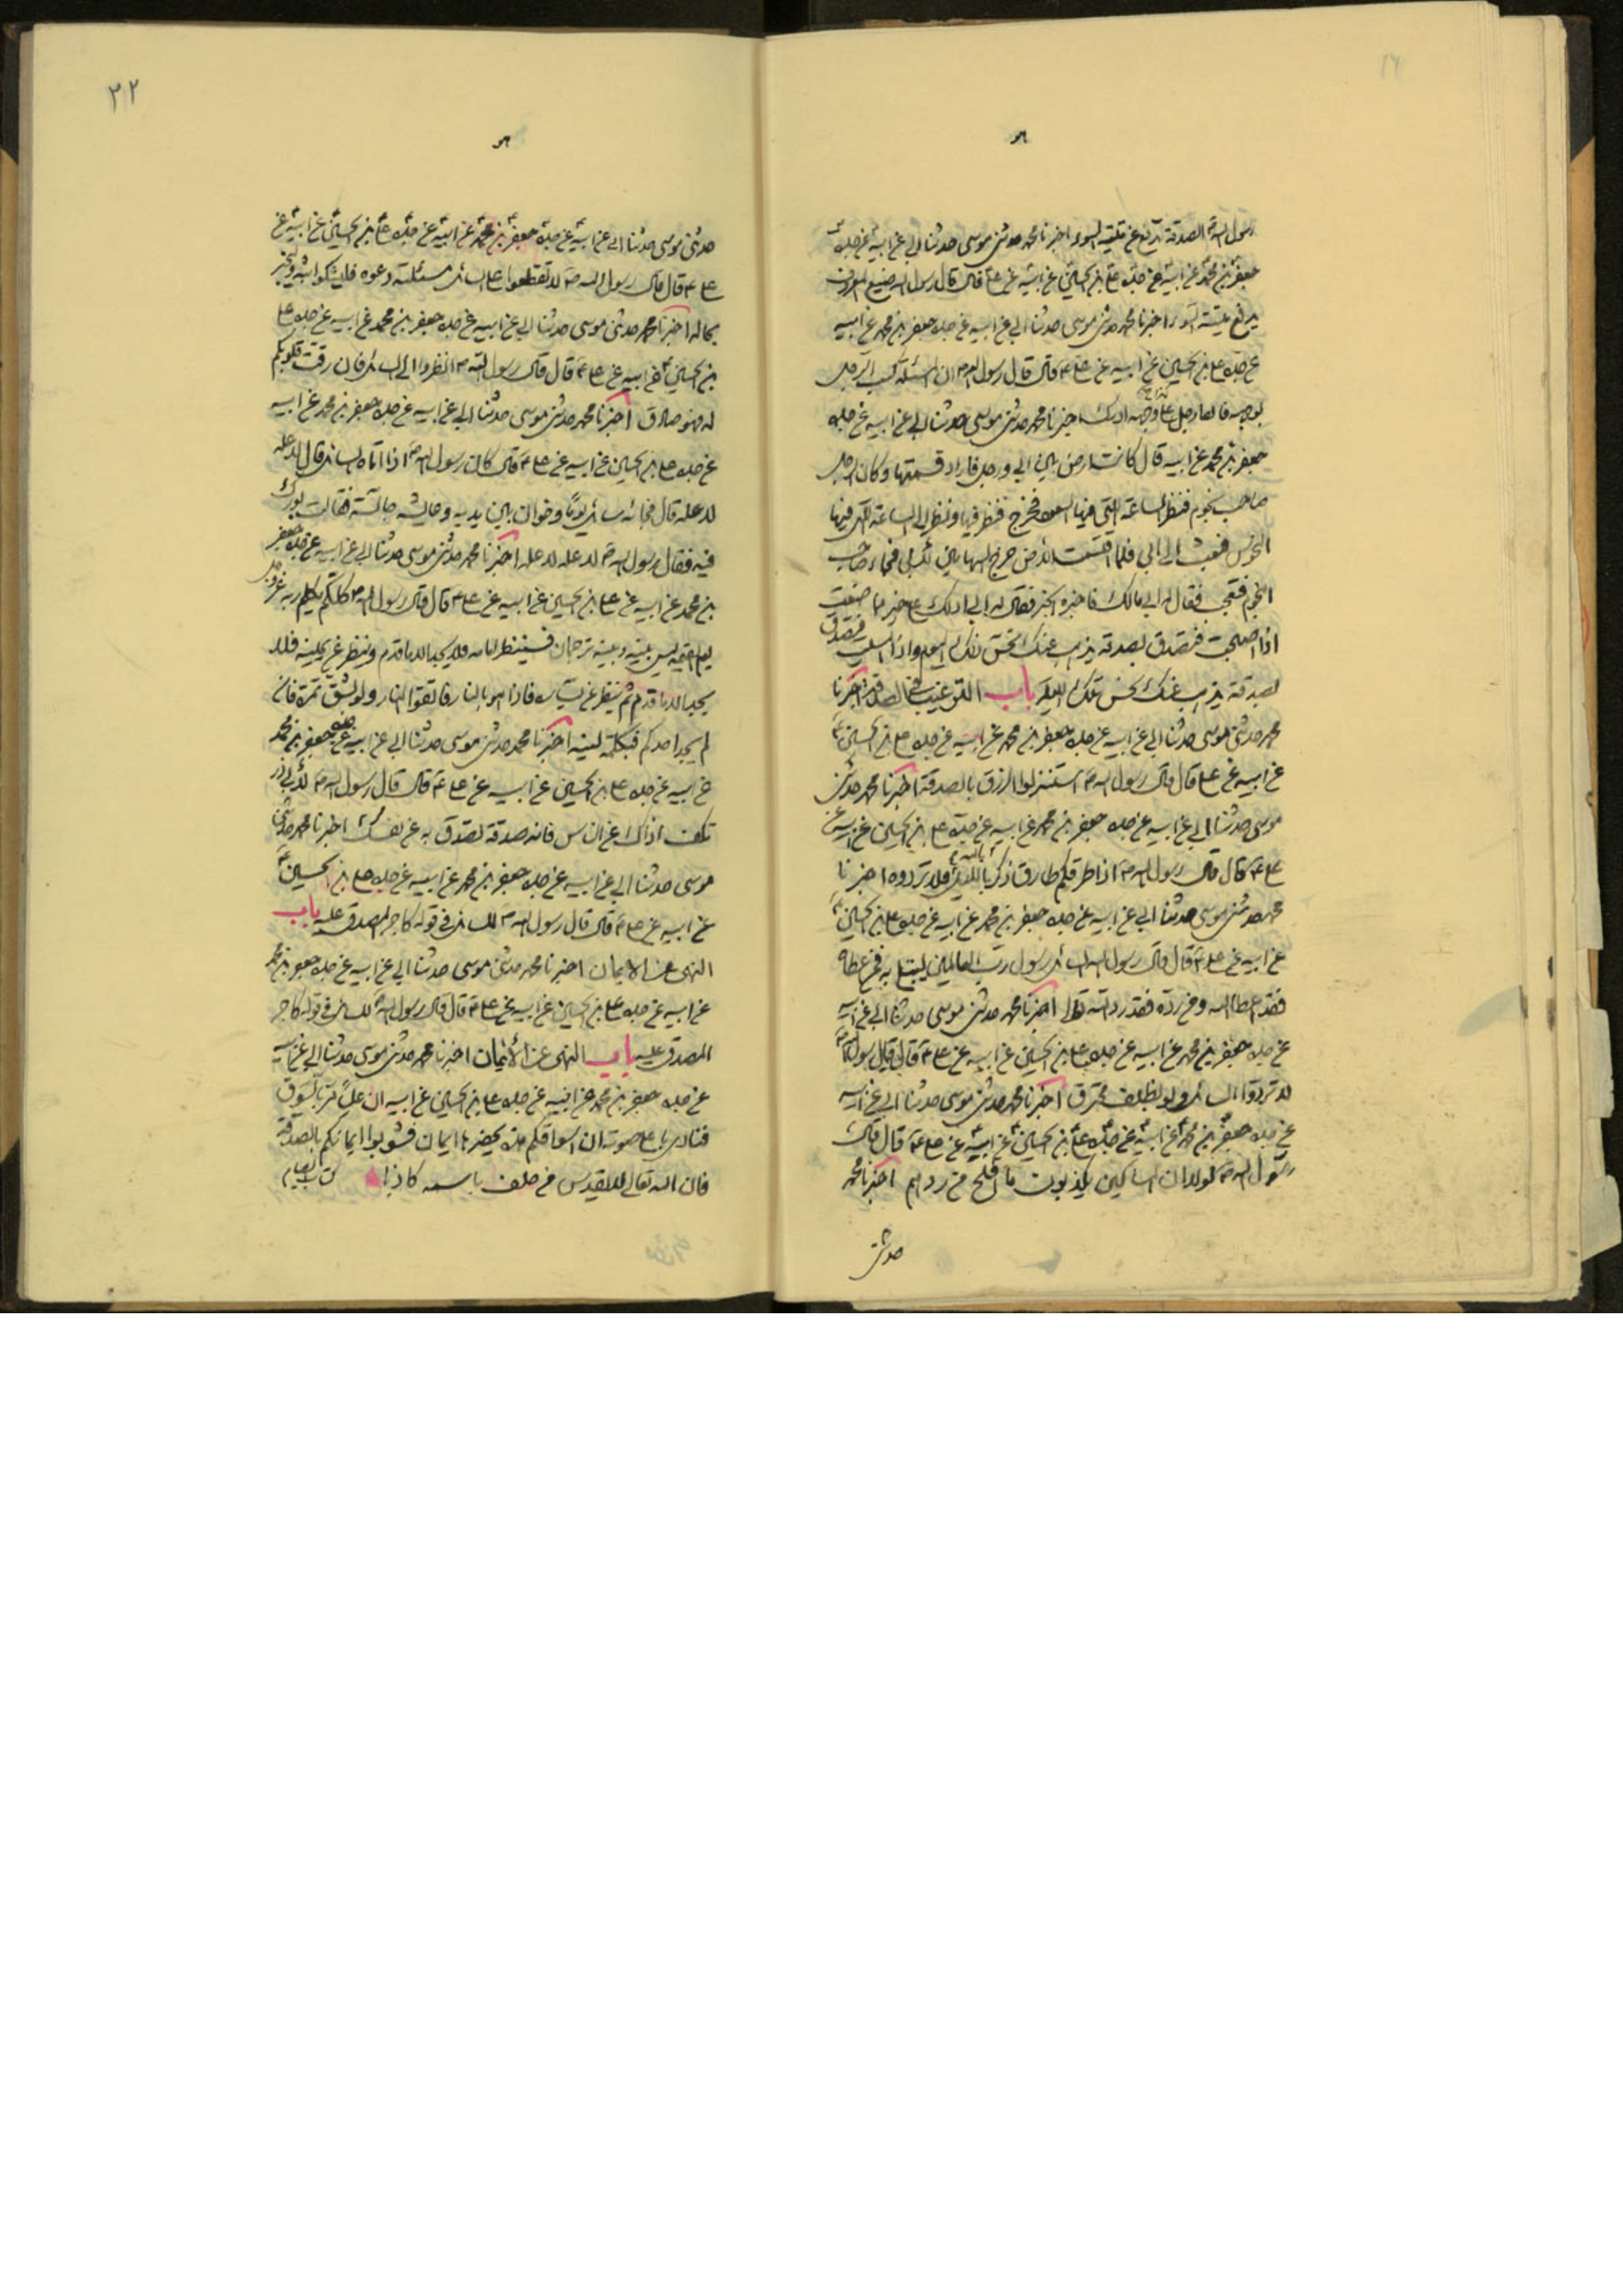 هو
رسول الله ص الصدقة تدفع عن ميتة السوء اخبرنا محمد حدثنى موسى حدثنا ابى عن ابيه عن جده
جعفر بن محمد عن ابيه عن جده على بن الحسين عن ابيه عن على ع قال قال رسول الله صنيع المعروف
يدفع ميتة السوء اخبرنا محمد حدثنى موسى حدثنا ابى عن ابيه عن جده جعفر بن محمد عن ابيه
عن جده على بن الحسين عن ابيه عن على ع قال قال رسول الله ص ان المسئلة كسب الرجل
بوجهه فابقا رجل على وجهه او ترك اخبرنا محمد حدثنى موسى حدثنا ابى عن ابيه عن جده
جعفر بن محمد عن ابيه قال كانت ارض بين ابى ورجل فاراد قسمتها وكان الرجل
صاحب نجوم فنظر الساعة التى فيها السعود فخرج فنظر فيها ونظر الى الساعة التى فيها
النحوس فبعث الى ابى فلما اقتسمت الارض خرج السهمان لابى فجاء صاحب
النجوم فتعجب فقال له ابى مالك فاخبره الخبر فقال له ابى ادلك على خير مما صنعت
اذا اصبحت فتصدق بصدقة يذهب عنك نحس ذلك اليوم واذا امسيت فتصدق
بصدقة يذهب عنك نحس تلك الليلة باب الترغيب فى الصدقة اخبرنا
محمد حدثنى موسى حدثنا ابى عن ابيه عن جده جعفر بن محمد عن ابيه عن جده على بن الحسين ع
عن ابيه عن على قال قال رسول الله ص استنزلوا الرزق بالصدقة اخبرنا محمد حدثنى
موسى حدثنا ابى عن ابيه عن جده جعفر بن محمد عن ابيه عن جده على بن الحسين عن ابيه عن
على ع قال قال رسول الله ص اذا طرقكم طارق ذكر بالليل فلا تردوه اخبرنا
محمد حدثنى موسى حدثنا ابى عن ابيه عن جده جعفر بن محمد عن ابيه عن جده على بن الحسين ع
عن ابيه عن على ع قال قال رسول الله السائل رسول رب العالمين ليبتلى به فمن اعطاه
فقد اعطا الله ومن رده فقد رد الله تعالى اخبرنا محمد حدثنى موسى حدثنا ابى عن ابيه
عن جده جعفر بن محمد عن ابيه عن جده على بن الحسين عن ابيه عن على ع قال قال رسول الله ص
لا تردوا السائل ولو بظلف محترق اخبرنا محمد حدثنى موسى حدثنا ابى عن ابيه
عن جده جعفر بن محمد عن ابيه عن جده على بن الحسين عن ابيه عن على ع قال قال
رسول الله ص لولا ان المساكين يكذبون ما افلح من ردهم اخبرنا محمد
حدثنى
٢٢
هو
حدثنى موسى حدثنا ابى عن ابيه عن جده جعفر بن محمد عن ابيه عن جده على بن الحسين عن ابيه عن
على ع قال قال رسول الله ص لا تقطعوا على السائل مسئلته دعوه فليشكوا بثه وليخبر
بحاله اخبرنا محمد حدثنى موسى حدثنا ابى عن ابيه عن جده جعفر بن محمد عن ابيه عن جده على
بن الحسين عن ابيه عن على ع قال قال رسول الله ص انظروا الى السائل فان رقت قلوبكم
له فهو صادق اخبرنا محمد حدثنى موسى حدثنا ابى عن ابيه عن جده جعفر بن محمد عن ابيه
عن جده على بن الحسين عن ابيه عن على ع قال كان رسول الله ص اذا اتاه السائل قال لا عله
لا عله قال فجائه سائل يوما وخوان بين يديه وعايشه جالسة فقالت بورك
فيه فقال رسول الله ص لا عله لا عله اخبرنا محمد حدثنى موسى حدثنا ابى عن ابيه عن جده جعفر
بن محمد عن ابيه عن على بن الحسين عن ابيه عن على ع قال قال رسول الله ص كلكم يكلم ربه عز وجل
يوم القيمة ليس بينه وبينه ترجمان فينظر امامه فلا يجد الا ما قدم وينظر عن يمينه فلا
يجد الا ما قدم ثم ينظر عن يساره فاذا هو بالنار فاتقوا النار ولو بشق تمرة فان
لم يجد احدكم فبكلمة لينة اخبرنا محمد حدثنى موسى حدثنا ابى عن ابيه عن جده جعفر بن محمد
عن ابيه عن جده على بن الحسين عن ابيه عن على ع قال قال رسول الله ص لابى ذر
تكف اذاك عن الناس فانه صدقة تصدق به عن نفسك اخبرنا محمد حدثنى
موسى حدثنا ابى عن ابيه عن جده جعفر بن محمد عن ابيه عن جده على بن الحسين ع
عن ابيه عن على ع قال قال رسول الله ص للسائل فى قوله كاجر المصدق عليه باب
النهى عن الايمان اخبرنا محمد حدثنى موسى حدثنا ابى عن ابيه عن جده جعفر بن محمد
عن ابيه عن جده على بن الحسين عن ابيه عن على ع قال قال رسول الله ص للسائل فى قوله كاجر
المصدق عليه باب النهى عن الأيمان اخبرنا محمد حدثنى موسى حدثنا ابى عن ابيه
عن جده جعفر بن محمد عن ابيه عن جده على بن الحسين عن ابيه ان علياً مر بالسوق
فنادى باعلى صوته ان اسواقكم هذه يحضرها ايمان فشوبوا ايمانكم بالصدقة
فان الله تعالى لا يقدس من حلف باسمه كاذبا كتاب الصيام